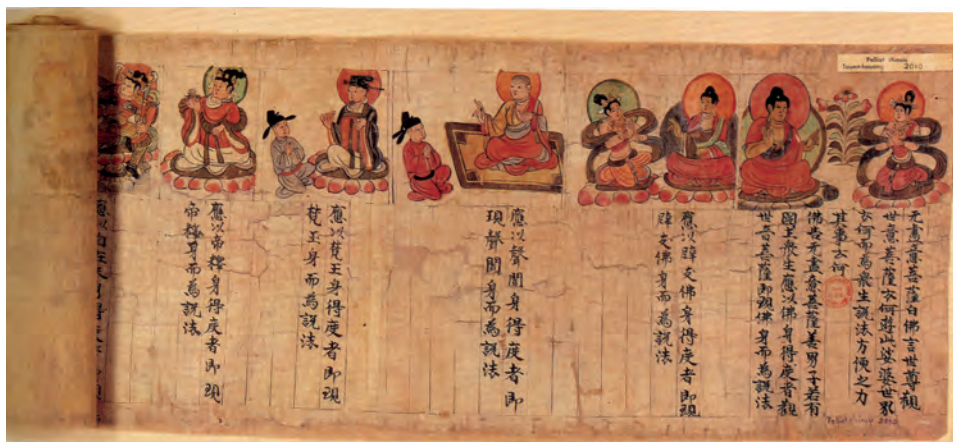 Pelliot chinois
Touen-houang 2010
无盡意菩薩白佛言世尊觀
世音菩薩云何遊此娑婆世界
云何而為衆生說法方便之力
其事云何
佛告无盡意菩薩善男子若有
國土衆生應以佛身得度者觀
世音菩薩即現佛身而為說法
應以辟支佛身得度者即現
辟支佛身而為說法
應以聲聞身得度者即
現聲聞身而為說法
應以梵王身得度者即現
梵王身而為說法
應以帝釋身得度者即現
帝釋身而為說法
應以自在天身得度
Pelliot chinois 2010